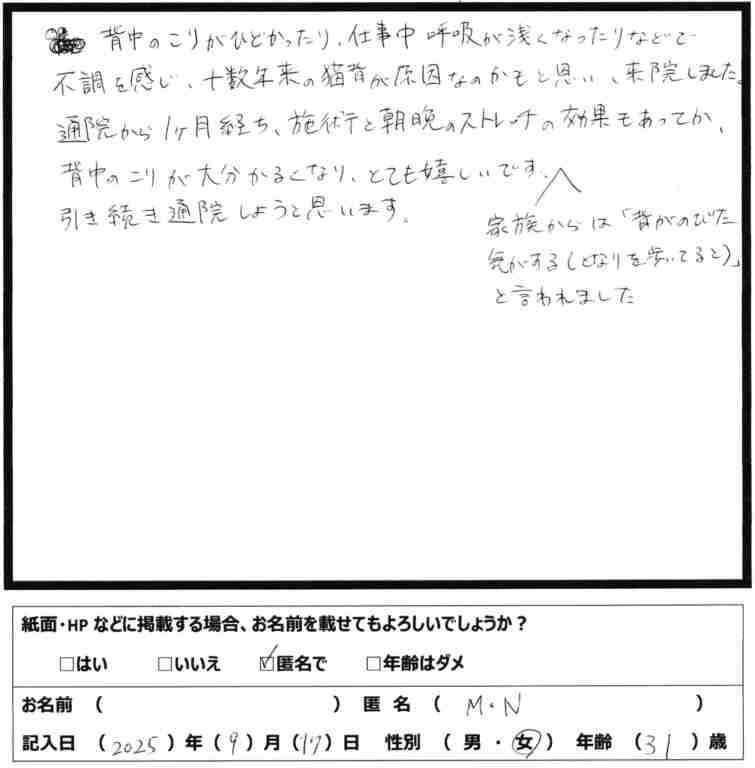 背中のこりがひどかったり、仕事中 呼吸が浅くなったりなどで
不調を感じ、十数年来の猫背が原因なのかもと思い、来院しました。
通院から1ヶ月経ち、施術と朝晩のストレッチの効果もあってか、
背中のこりが大分かるくなり、とても嬉しいです。
家族からは「背がのびた
気がする(となりを歩いてると)」
と言われました
引き続き通院しようと思います。
紙面・HPなどに掲載する場合、お名前を載せてもよろしいでしょうか?
□はい □いいえ ☑匿名で □年齢はダメ
お名前 ( ) 匿名 ( M・N )
記入日 (2025)年(9)月(17)日 性別 (男・女) 年齢 (31)歳